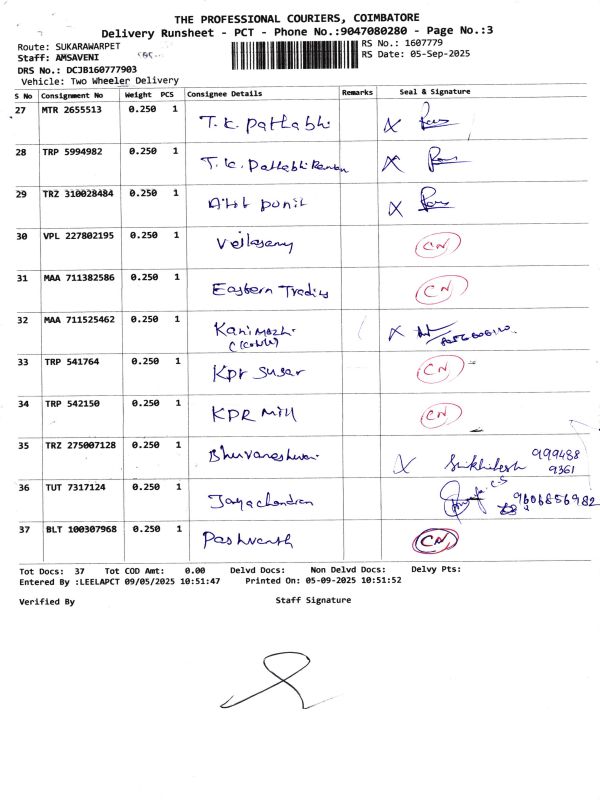 THE PROFESSIONAL COURIERS, COIMBATORE
Delivery Runsheet - PCT - Phone No.:9047080280 - Page No.:3
Route: SUKARAWARPET
RS No.: 1607779
Staff: AMSAVENI
RS Date: 05-Sep-2025
DRS No.: DCJB160777903
Vehicle: Two Wheeler Delivery
S No Consignment No Weight PCS Consignee Details Remarks Seal & Signature
27 MTR 2655513 0.250 1 T.K. Pattabhi X
28 TRP 5994982 0.250 1 T.K. Pattabhi Raman X
29 TRZ 310028484 0.250 1 X
30 VPL 227802195 0.250 1 CN
31 MAA 711382586 0.250 1 Eastern Trading CN
32 MAA 711525462 0.250 1 Kanimozhi X
33 TRP 541764 0.250 1 KPR Sugar CN
34 TRP 542150 0.250 1 KPR Mill CN
35 TRZ 275007128 0.250 1 Bhuvaneshwari X 999488
9361
36 TUT 7317124 0.250 1 Jayachandran 9606856982
37 BLT 100307968 0.250 1 CN
Tot Docs: 37 Tot COD Amt: 0.00 Delvd Docs: Non Delvd Docs: Delvy Pts:
Entered By :LEELAPCT 09/05/2025 10:51:47 Printed On: 05-09-2025 10:51:52
Verified By Staff Signature